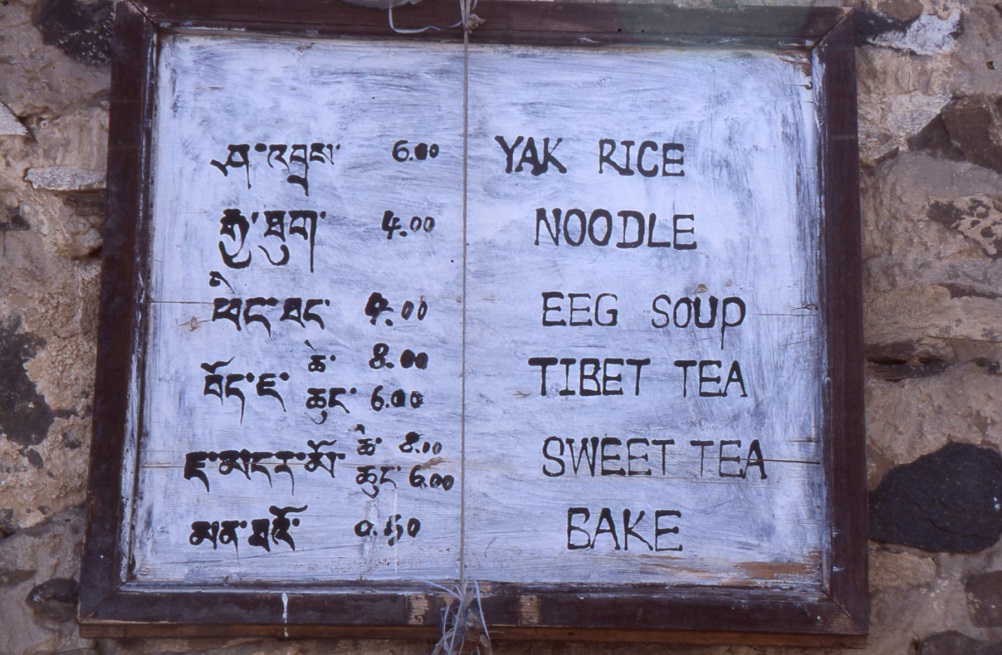 ཤ་འབྲས་ 6.00 YAK RICE
རྒྱ་ཐུག 4.00 NOODLE
4.00 EEG SOUP
བོད་ཇ་ ཆེ་ 8.00 TIBET TEA
ཆུང་ 6.00
ཇ་མངར་མོ་ ཆེ་ 8.00 SWEET TEA
ཆུང་ 6.00
0.50 BAKE